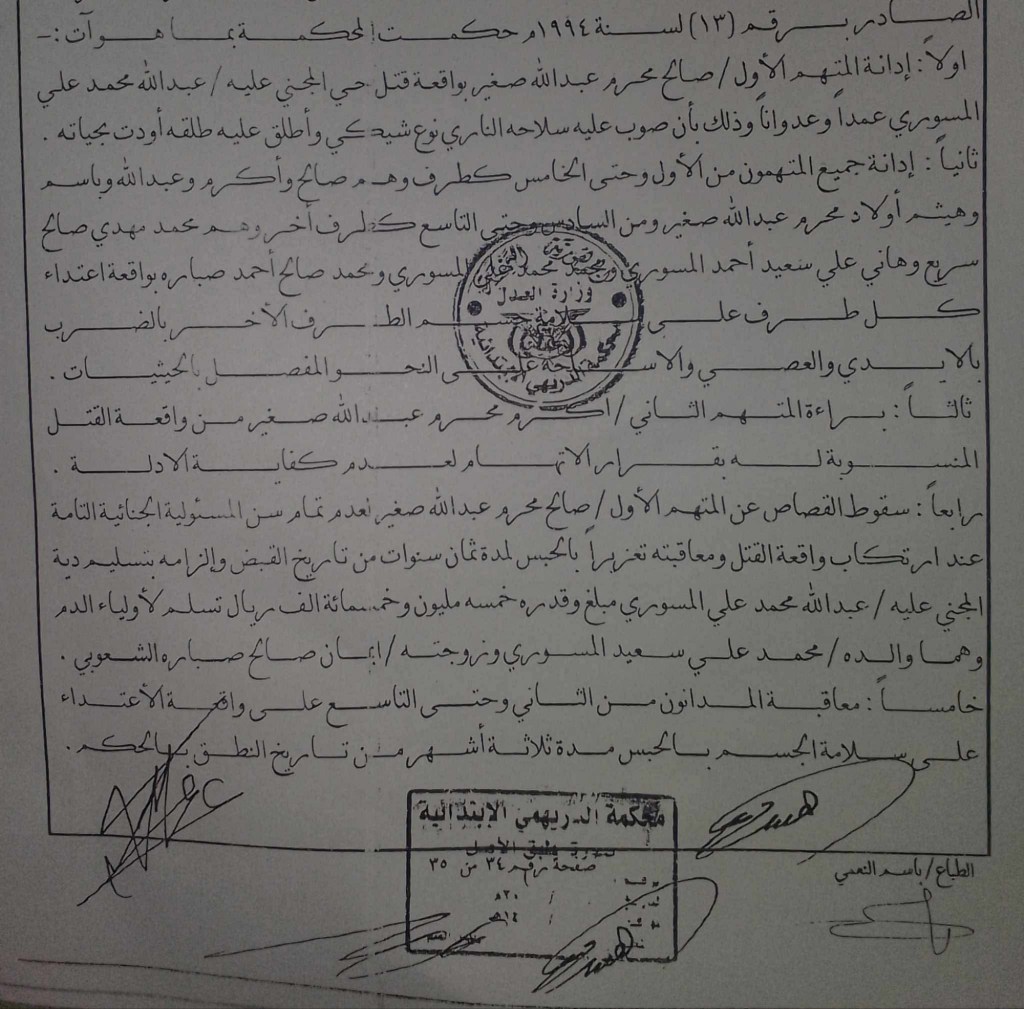 الصادر برقم (١٣) لسنة ١٩٩٤م حكمت المحكمة بما هو آت :-
اولاً : إدانة المتهم الأول / صالح محرم عبدالله صغير بواقعة قتل حي المجني عليه / عبدالله محمد علي
المسوري عمداً وعدواناً وذلك بأن صوب عليه سلاحه الناري نوع شيكي وأطلق عليه طلقه أودت بحياته .
ثانياً : إدانة جميع المتهمون من الأول وحتى الخامس كطرف وهم صالح وأكرم وعبدالله وباسم
وهيثم أولاد محرم عبدالله صغير ومن السادس وحتى التاسع كطرف آخر وهم محمد مهدي صالح
سريع وهاني علي سعيد أحمد المسوري ومحمد محمد علي المسوري ومحمد صالح أحمد صباره بواقعة اعتداء
كل طرف على سلامة جسم الطرف الأخر بالضرب
بالايدي والعصي والاسلحة على النحو المفصل بالحيثيات .
ثالثاً : براءة المتهم الثاني / اكرم محرم عبدالله صغير من واقعة القتل
المنسوبة له بقرار الاتهام لعدم كفاية الادلة .
رابعاً : سقوط القصاص عن المتهم الأول / صالح محرم عبدالله صغير لعدم تمام سن المسئولية الجنائية التامة
عند ارتكاب واقعة القتل ومعاقبته تعزيراً بالحبس لمدة ثمان سنوات من تاريخ القبض وإلزامه بتسليم دية
المجني عليه / عبدالله محمد علي المسوري مبلغ وقدره خمسه مليون وخمسمائة الف ريال تسلم لأولياء الدم
وهما والده / محمد علي سعيد المسوري وزوجته / ايمان صالح صباره الشعوبي .
خامساً : معاقبة المدانون من الثاني وحتى التاسع على واقعة الأعتداء
على سلامة الجسم بالحبس مدة ثلاثة أشهر من تاريخ النطق بالحكم .
وزارة العدل
محكمة الدريهمي الابتدائية
محكمة الدريهمي الإبتدائية
صورة طبق الأصل
صفحة رقم ٣٤ من ٣٥
الطباع / باسم النعمي